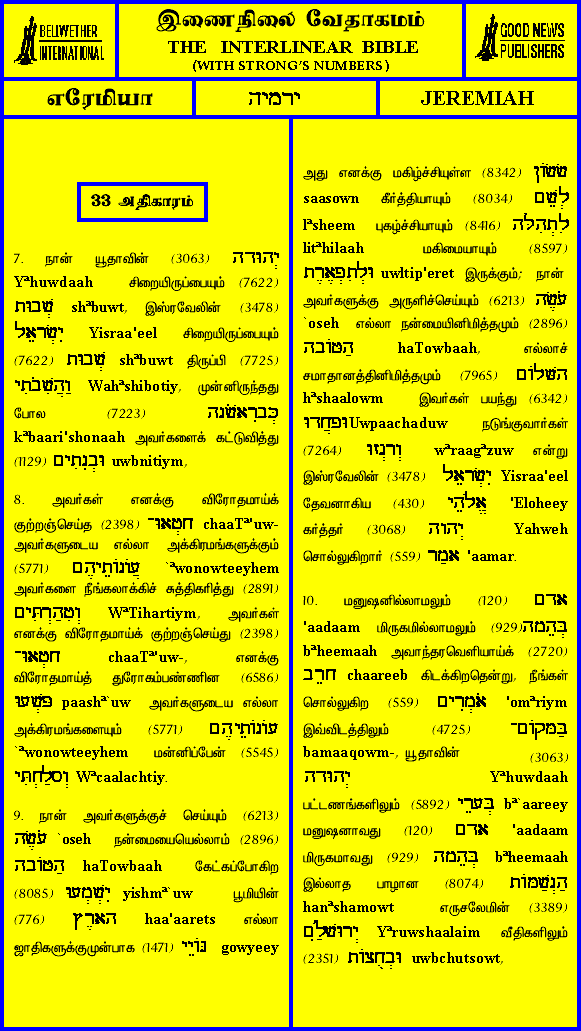 BELIWETHER
INTERNATIONAL
இணைநிலை வேதாகமம்
THE INTERLINEAR BIBLE
(WITH STRONG'S NUMBERS)
GOOD NEWS
PUBLISHERS
எரேமியா
ירמיה
JEREMIAH
33 அதிகாரம்
7. நான் யூதாவின் (3063) יְהוּדה
Yᵃhuwdaah சிறையிருப்பையும் (7622)
שְׁבוּת shᵃbuwt, இஸ்ரவேலின் (3478)
יִשְׂראֵל Yisraa'eel சிறையிருப்பையும்
(7622) שְׁבוּת shᵃbuwt திருப்பி (7725)
וַהֲשִׁבֹתִי Wahᵃshibotiy, முன்னிருந்தது
போல (7223) כְּבראִשֹׁנה
kᵃbaari'shonaah அவர்களைக் கட்டுவித்து
(1129) וּבְנִתִים uwbnitiym,
8. அவர்கள் எனக்கு விரோதமாய்க்
குற்றஞ்செய்த (2398) חטְאוּ־ chaaTᵃ'uw-
அவர்களுடைய எல்லா அக்கிரமங்களுக்கும்
(5771) עֲוֹנוֹתֵיהֶם `ᵃwonowteeyhem
அவர்களை நீங்கலாக்கிச் சுத்திகரித்து (2891)
וְטִהַרְתִּים WᵃTihartiym, அவர்கள்
எனக்கு விரோதமாய்க் குற்றஞ்செய்து (2398)
חטְאוּ־ chaaTᵃ'uw-, எனக்கு
விரோதமாய்த் துரோகம்பண்ணின (6586)
פּשְׁעוּ paashᵃ`uw அவர்களுடைய எல்லா
அக்கிரமங்களையும் (5771) עוֹנוֹתֵיהֶם
`ᵃwonowteeyhem மன்னிப்பேன் (5545)
וְסלַחְתִּי Wᵃcaalachtiy.
9. நான் அவர்களுக்குச் செய்யும் (6213)
עֹשֶׂה `oseh நன்மையையெல்லாம் (2896)
הַטּוֹבה haTowbaah கேட்கப்போகிற
(8085) יִשְׁמְעוּ yishmᵃ`uw பூமியின்
(776) האָרֶץ haa'aarets எல்லா
ஜாதிகளுக்குமுன்பாக (1471) גּוֹיֵי gowyeey
அது எனக்கு மகிழ்ச்சியுள்ள (8342) שׂשׂוֹן
saasown கீர்த்தியாயும் (8034) לְשֵׁם
lᵃsheem புகழ்ச்சியாயும் (8416) לִתְהִלּה
litᵃhilaah மகிமையாயும் (8597)
וּלְתִפְאֶרֶת uwltip'eret இருக்கும்; நான்
அவர்களுக்கு அருளிச்செய்யும் (6213) עֹשֶׂה
`oseh எல்லா நன்மையினிமித்தமும் (2896)
הַטּוֹבה haTowbaah, எல்லாச்
சமாதானத்தினிமித்தமும் (7965) השּׁלוֹם
hᵃshaalowm இவர்கள் பயந்து (6342)
וּפחֲדוּ Uwpaachaduw நடுங்குவார்கள்
(7264) וְרגְזוּ wᵃraagᵃzuw என்று
இஸ்ரவேலின் (3478) יִשְׂראֵל Yisraa'eel
தேவனாகிய (430) אֱלֹהֵי 'Eloheey
கர்த்தர் (3068) יהוה Yahweh
சொல்லுகிறார் (559) אמַר 'aamar.
10. மனுஷனில்லாமலும் (120) אדם
'aadaam மிருகமில்லாமலும் (929) בְּהֵמה
bᵃheemaah அவாந்தரவெளியாய்க் (2720)
חרֵב chaareeb கிடக்கிறதென்று, நீங்கள்
சொல்லுகிற (559) אֹמְרִים 'omᵃriym
இவ்விடத்திலும் (4725) בַּמקוֹם־
bamaaqowm-, யூதாவின் (3063)
יְהוּדה Yᵃhuwdaah
பட்டணங்களிலும் (5892) בְּערֵי bᵃ`aareey
மனுஷனாவது (120) אדם 'aadaam
மிருகமாவது (929) בְּהֵמה bᵃheemaah
இல்லாத பாழான (8074) הַנְשַׁמּוֹת
hanᵃshamowt எருசலேமின் (3389)
יְרוּשׁלַיִם Yᵃruwshaalaim வீதிகளிலும்
(2351) וּבְחֻצוֹת uwbchutsowt,